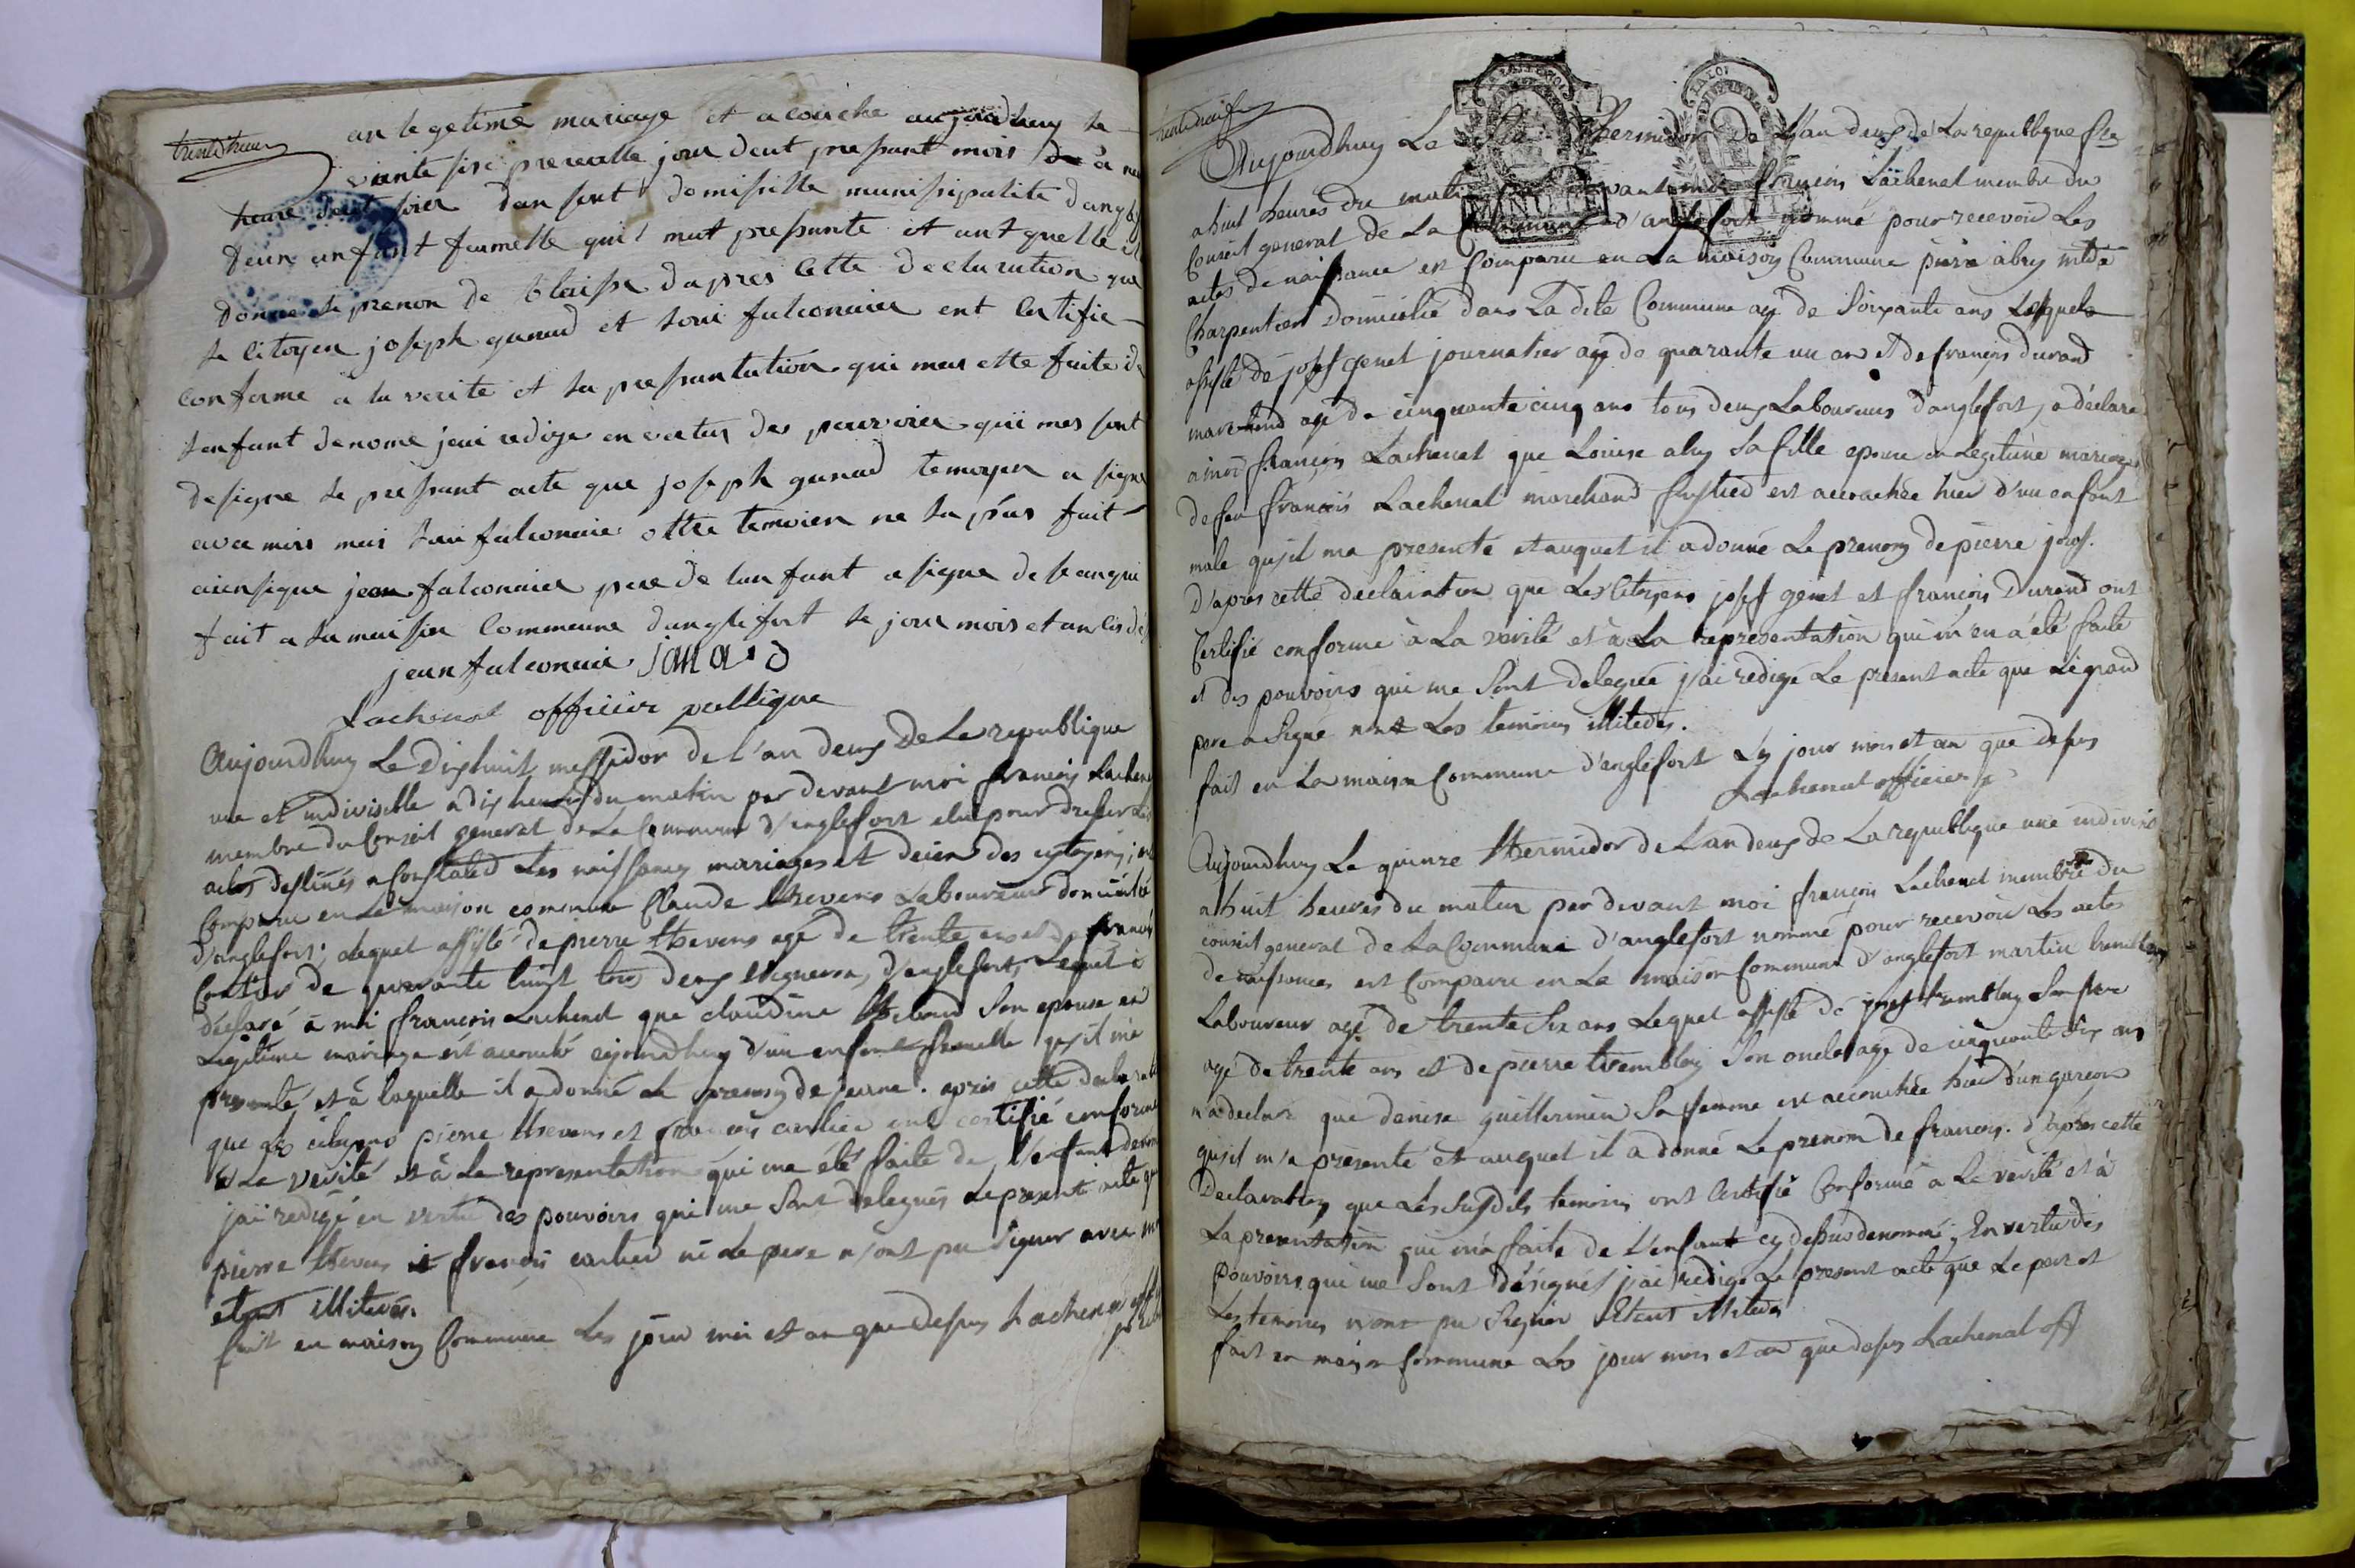 trente huit
an legetime mariage et a couche aujourdhuy le
vinte sixe prerealle jour deut presant mois de a neu
heure deut soier dan sont domisille munisipalite danglef
deun anfant faumelle qui l mat presante et aut quelle il
donne le prenon de blaisse dapres Cette declaration que
le Citoyen joseph ganaud et loui falconnier ont Certifie
Conforme a la verite et la presantation qui mas ette faite de
lenfant denome jeai redige en vertus des pouvoier qui mes sont
designe le presant acte que joseph ganad temoyen a signe
avec mois mais loui falconnier ottre temoien ne la pas fait
aiensique jean falconnier pere de lanfant a signe de se anquit
fait a la maission Commeune danglefort le jour mois et an Cis de
jean falconnie janad
Lachenal officier publique
Aujourdhuy Le Dixhuit messidor de l'an deux De La republique
une et indivisible a dix heures du matin par devant moi francois Lachen
membre du Conseil general de La Commune d'anglefort elu pour dresser Les
actes destinés a Constater Les naissances mariages et deces des citoyens; est
Comparu en La maison commune Claude thevens Laboureur domicilié
d'anglefort; Lequel assisté de pierre thevens agé de trente ans et de francois
Cartier de quarante huit tous deux vignerons d'anglefort, Lequel a
déclaré à moi francois Lachenal que claudine son epouse en
Legitime mariage est accouché aujourdhuy d'un enfant femelle qu'il m'a
presenté et à laquelle il a donné Le prenom de jeanne. apris cette declarati
que les citoyens pierre thevens et francois cartier ont certifié conforme
a La verité et à La representation qui ma été faite de L'enfant denom
jai redigé en vertu des pouvoirs qui me sont delegués Le present acte que
pierre thevens et francois cartier ni Le pere n'ont pu signer avec moi
etant illiterés.
fait en maison Commune Les jour moi et an que dessus Lachenal off
trente neuf
Aujourdhuy Le thermidor de L'an deux de La republique fr
a huit heures du matin par devant moi francois Lachenal membre du
Conseil general de La Commune d'anglefort nommé pour recevoir Les
actes de naissance est Comparu en La maison Commune pierre abry
Charpentier Domicilié dans La dite Commune agé de soixante ans Lesquels
assisté de josef genet journalier agé de quarante un an et de francois durand
marchand agé de cinquante cinq ans tous deux Laboureurs d'anglefort, a déclaré
a moi francois Lachenal que Louise abry sa fille epouse en Legitime mariage
de feu francois Lachenal marchand est accouchée hier d'un enfant
male qu'il ma presenté et auquel il a donné Le prenom de pierre josef.
D'apres cette declaration que Les Citoyens josef genet et francois Durand ont
Certifié conforme à La verité et à La representation qui m'en a été faite
et des pouvoirs qui me sont delegués j'ai redigé Le present acte que Le grand
pere a signé non Les temoins illiterés.
fait en La maison Commune d'anglefort Les jour mois et an que dessus
Lachenal officier p
Aujourdhuy Le quinze thermidor de L'an deux de La republique une indivisi
a huit heures du matin par devant moi francois Lachenal membre du
conseil general de La Commune d'anglefort nommé pour recevoir Les actes
de naissances est Comparu en La maison Commune d'anglefort martin tremblay
Laboureur agé de trente six ans Lequel assisté de josef tremblay son frere
agé de trente ans et de pierre tremblay son oncle agé de cinquante six ans
m'a declaré que denise guillermin sa femme est accouchée hier d'un garcon
qu'il m'a presenté et auquel il a donné Le prenom de francois. D'apres cette
Declaration que Les susdits temoins ont Certifié Conforme a La verité et à
La presentation qui m'a faite de L'enfant cy dessus denommé; En vertu des
pouvoirs qui me sont désignés j'ai redigé Le present acte que Le pere et
Les temoins n'ont pu signer Etant illiterés
fait en maison Commune Les jour mois et an que dessus Lachenal off